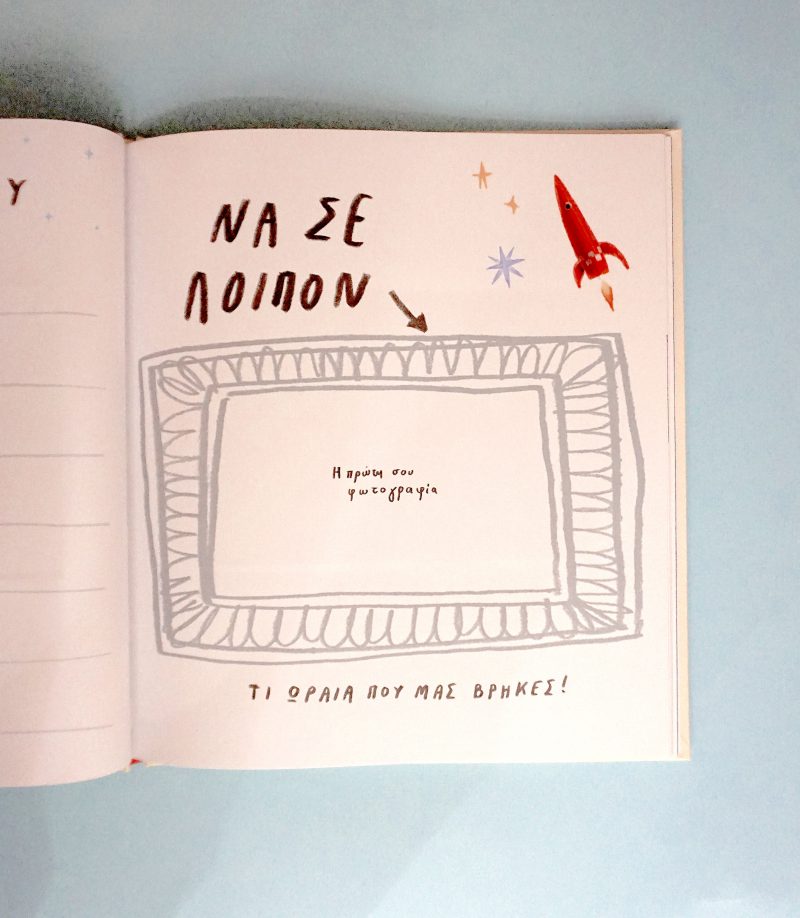 Υ
ΝΑ ΣΕ
ΛΟΙΠΟΝ
Η πρώτη σου
φωτογραφία
ΤΙ ΩΡΑΙΑ ΠΟΥ ΜΑΣ ΒΡΗΚΕΣ!